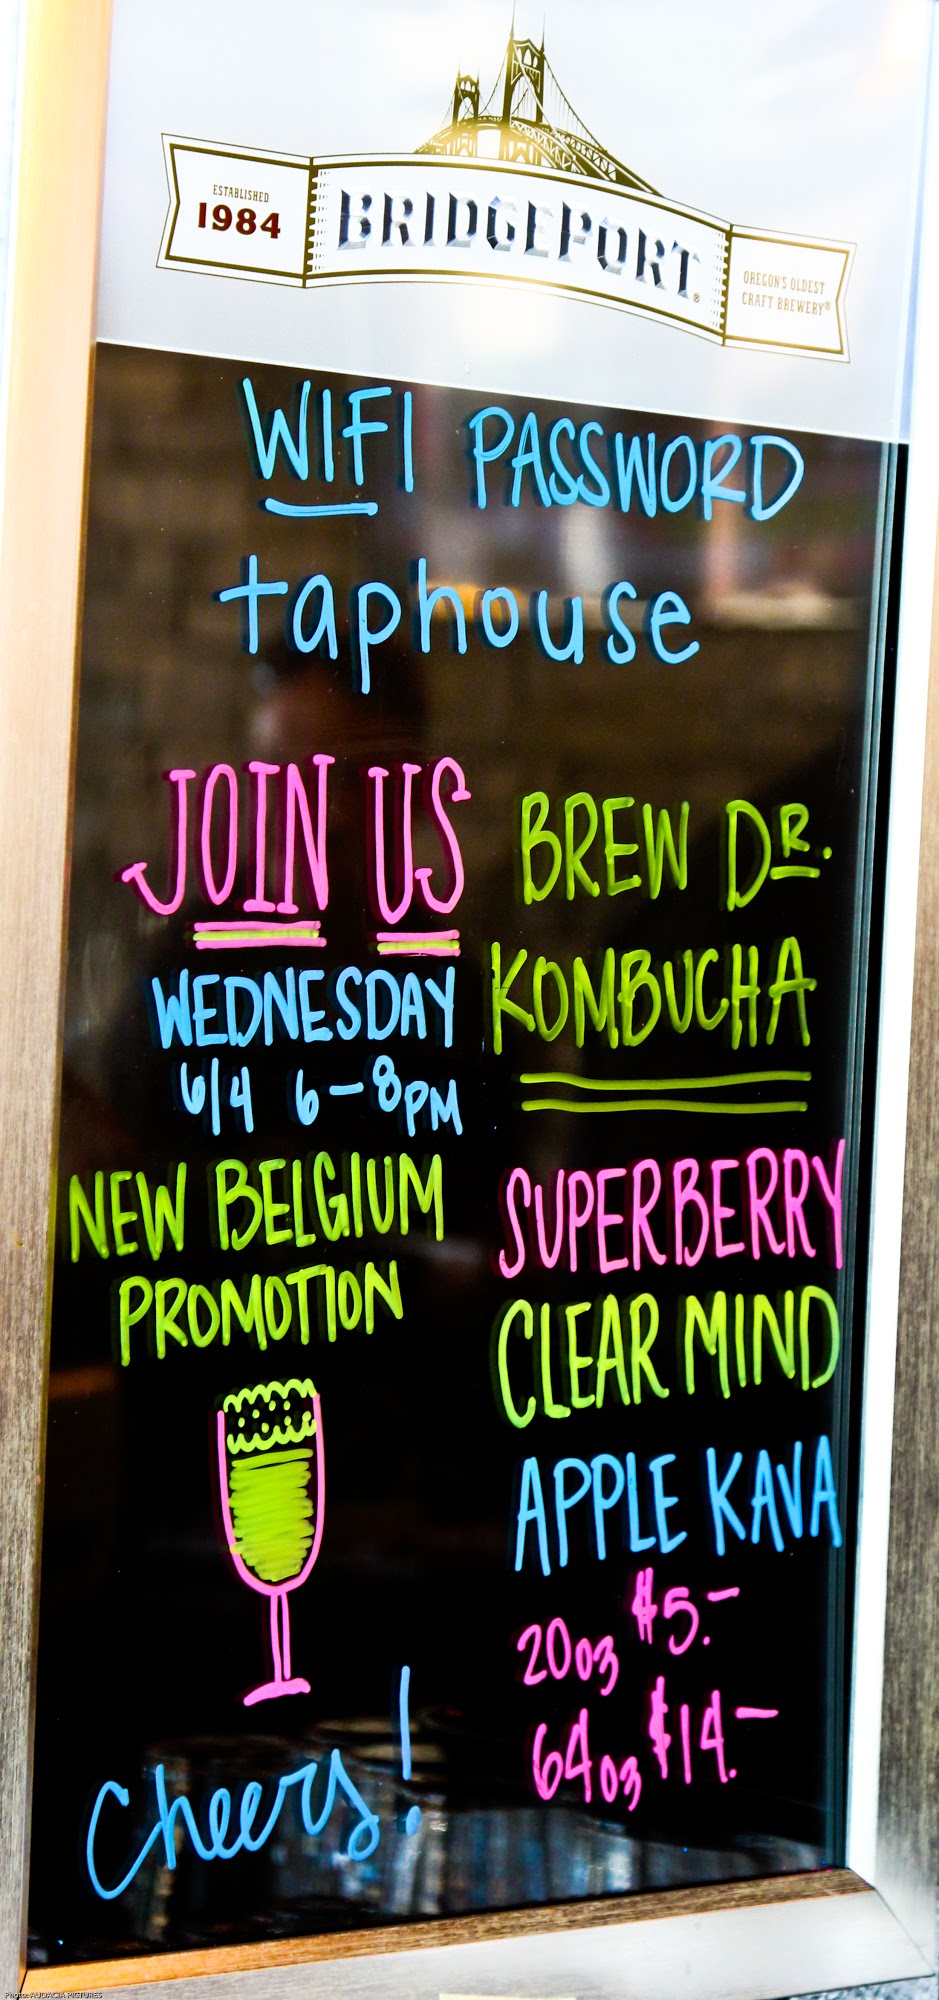 ESTABLISHED
1984
BRIDGEPORT®
OREGON'S OLDEST
CRAFT BREWERY®
WIFI PASSWORD
taphouse
JOIN US
WEDNESDAY
6/4 6-8PM
NEW BELGIUM
PROMOTION
Cheers!
BREW DR.
KOMBUCHA
SUPERBERRY
CLEAR MIND
APPLE KAVA
20oz $5.-
64oz $14.-
Photo: AUDACIA PICTURES